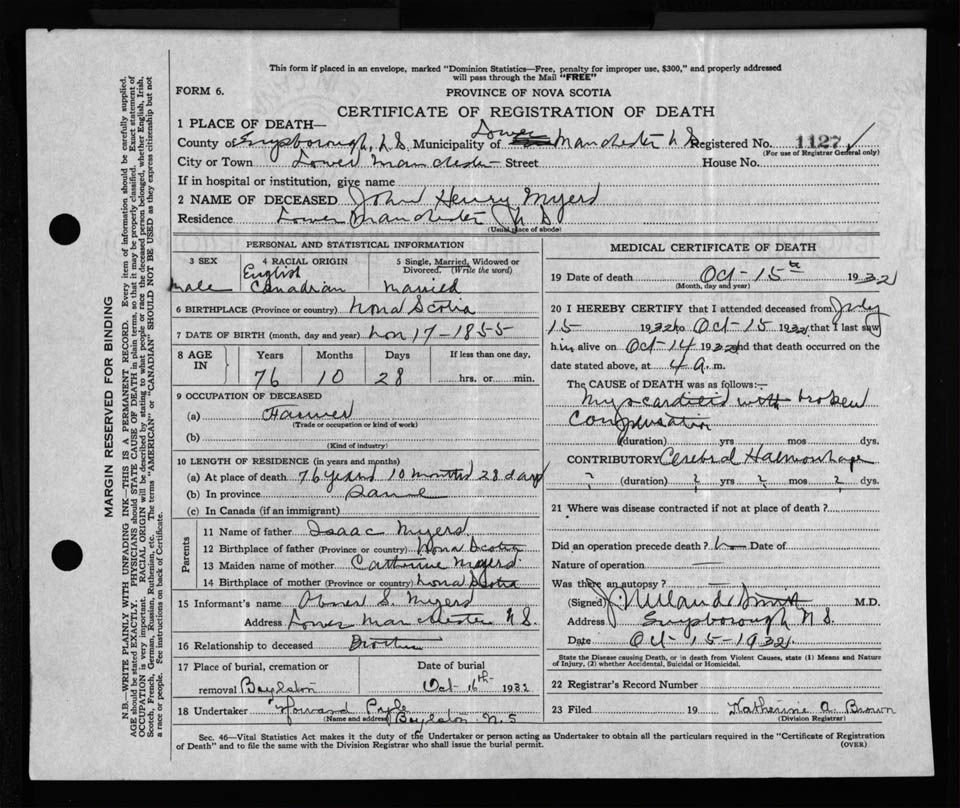 This form if placed in an envelope, marked "Dominion Statistics—Free, penalty for improper use, $300," and properly addressed
will pass through the Mail "FREE"
FORM 6.
PROVINCE OF NOVA SCOTIA
CERTIFICATE OF REGISTRATION OF DEATH
1 PLACE OF DEATH—
County of Guysborough, N.S. Municipality of Lower Manchester N S Registered No. 1127
(For use of Registrar General only)
City or Town Lower Manchester Street House No.
If in hospital or institution, give name
2 NAME OF DECEASED John Henry Myers
Residence Lower Manchester N S
(Usual place of abode)
PERSONAL AND STATISTICAL INFORMATION
3 SEX
male
4 RACIAL ORIGIN
English
Canadian
5 Single, Married, Widowed or
Divorced. (Write the word)
Married
6 BIRTHPLACE (Province or country) Nova Scotia
7 DATE OF BIRTH (month, day and year) Nov 17-1855
8 AGE IN Years Months Days If less than one day,
76 10 28 hrs. or min.
9 OCCUPATION OF DECEASED
(a) Farmer
(Trade or occupation or kind of work)
(b)
(Kind of industry)
10 LENGTH OF RESIDENCE (in years and months)
(a) At place of death 76 years 10 months 28 days
(b) In province Same
(c) In Canada (if an immigrant)
Parents
11 Name of father Isaac Myers
12 Birthplace of father (Province or country) Nova Scotia
13 Maiden name of mother Catherine Myers
14 Birthplace of mother (Province or country) Nova Scotia
15 Informant's name Abner S. Myers
Address Lower Manchester N S.
16 Relationship to deceased Brother
17 Place of burial, cremation or
removal Boylston
Date of burial
Oct 16th 1932
18 Undertaker Howard
(Name and address) Boylston N.S
MEDICAL CERTIFICATE OF DEATH
19 Date of death Oct-15th 1932
(Month, day and year)
20 I HEREBY CERTIFY that I attended deceased from July
15 1932 to Oct-15 1932 that I last saw
him alive on Oct-14 1932 and that death occurred on the
date stated above, at 4 a. m.
The CAUSE of DEATH was as follows:—
Myocarditis with broken
Compensation
(duration) yrs mos dys.
CONTRIBUTORY Cerebral Haemorrhage
? (duration) ? yrs ? mos 2 dys.
21 Where was disease contracted if not at place of death?
Did an operation precede death? Date of
Nature of operation —
Was there an autopsy? —
(Signed) Smith M.D.
Address Guysborough N S.
Date Oct 15-1932
State the Disease causing Death, or in death from Violent Causes, state (1) Means and Nature
of Injury, (2) whether Accidental, Suicidal or Homicidal.
22 Registrar's Record Number
23 Filed 19 Katherine A. Brown
(Division Registrar)
Sec. 46—Vital Statistics Act makes it the duty of the Undertaker or person acting as Undertaker to obtain all the particulars required in the "Certificate of Registration
of Death" and to file the same with the Division Registrar who shall issue the burial permit.
(OVER)
MARGIN RESERVED FOR BINDING
N.B.—WRITE PLAINLY WITH UNFADING INK—THIS IS A PERMANENT RECORD. Every item of information should be carefully supplied.
AGE should be stated EXACTLY. PHYSICIANS should STATE CAUSE OF DEATH in plain terms, so that it may be properly classified. Exact statement of
OCCUPATION is very important. RACIAL ORIGIN will be described by stating to what people or race the deceased person belonged, whether English, Irish,
Scotch, French, German, Russian, Ruthenian, etc. The terms "AMERICAN" or "CANADIAN" SHOULD NOT BE USED as they express citizenship but not
a race or people. See instructions on back of Certificate.